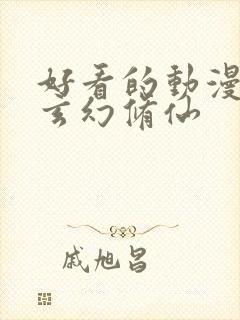 好看的動漫
玄幻脩仙
戚旭昌